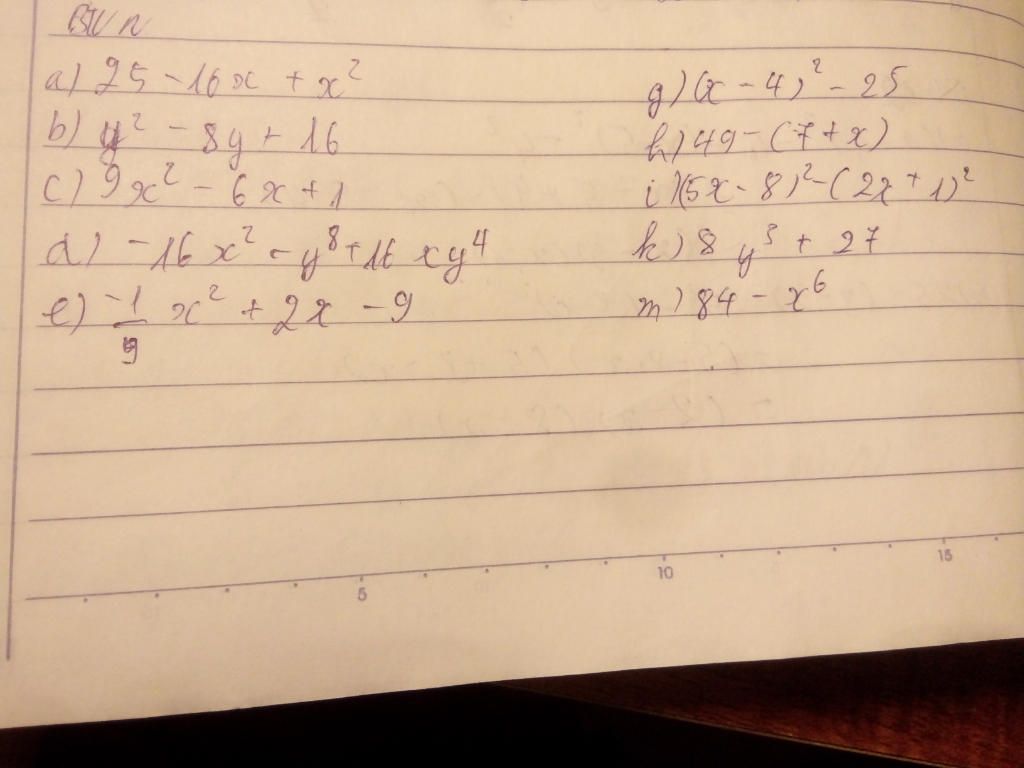 BTVN
a) 25 - 16x + x²
b) y² - 8y + 16
c) 9x² - 6x + 1
d) -16x² - y⁸ + 16xy⁴
e) -1/9 x² + 2x - 9
g) (x - 4)² - 25
h) 49 - (7 + x)
i) (5x - 8)² - (2x + 1)²
k) 8y³ + 27
m) 84 - x⁶
5
10
15